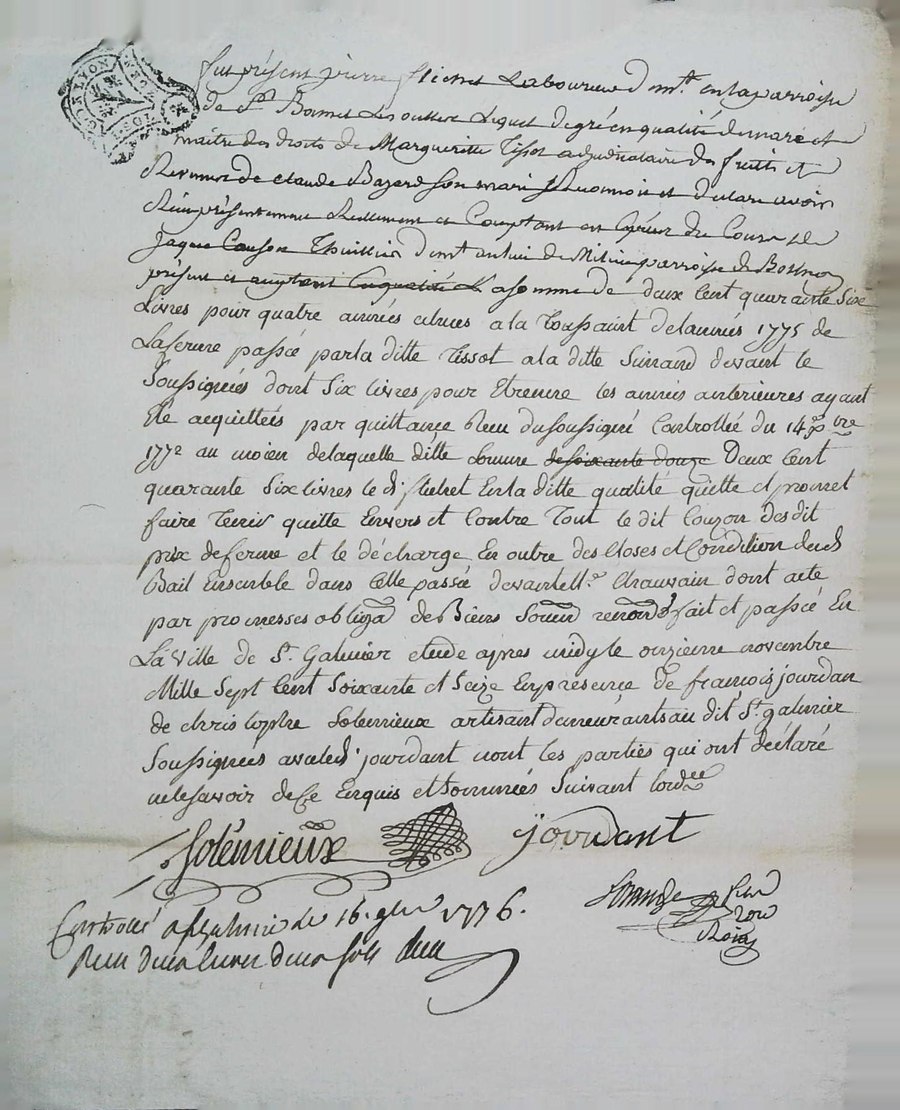 GEN. DE LYON
fut présent pierre Stichet Laboureur d mt. en la parroisse
de St. Bonnet Les oulles Lequel de gré en qualité de mary et
maitre des droits de Margueritte Tissot adjudicataire des fruits et
Revenus de Claude Bazard son mari et declare avoir
Reçu présentement Reellement et Comptant en Espèces du Cours de
jaque Couson Thuillier d mt. au lieu de parroisse de
présent et acceptant La somme de deux Cent quarante Six
Livres pour quatre années echues a la Toussaint de lannée 1775 de
Laferme passée par la ditte Tissot a la ditte devant le
Soussignés dont Six livres pour Etrenne les années anterieures ayant
Ete acquittées par quittance Reçu du soussigné Controllée du 14e. 9bre
1772 au moien de laquelle ditte somme de soixante douze Deux Cent
quarante Six livres le d. Stichet En la ditte qualité quitte et promet
faire Tenir quitte Envers et Contre Tout le dit Couzon des dit
prix de ferme et le décharge En outre des Closes et Condition dud
Bail Ensemble dans Celle passée devant Me. Chauvain dont acte
par promesses obligãõ de Biens Soum renonõ fait et passé En
La Ville de St. Galmier etude apres midy le onzieme novembre
Mille Sept Cent Soixante et Seize En presence de francois jourdan
de christophe Solemieux artisant demeurants au dit St. galmier
Soussignées avec led. jourdant nont les parties qui ont déclaré
ne le savoir de Ce Enquis et Sommées Suivant lordce
Solémieux
jourdant
Controlé a St Galmier le 16. 9bre 1776.
Reçu deux livres deux sols
Roial